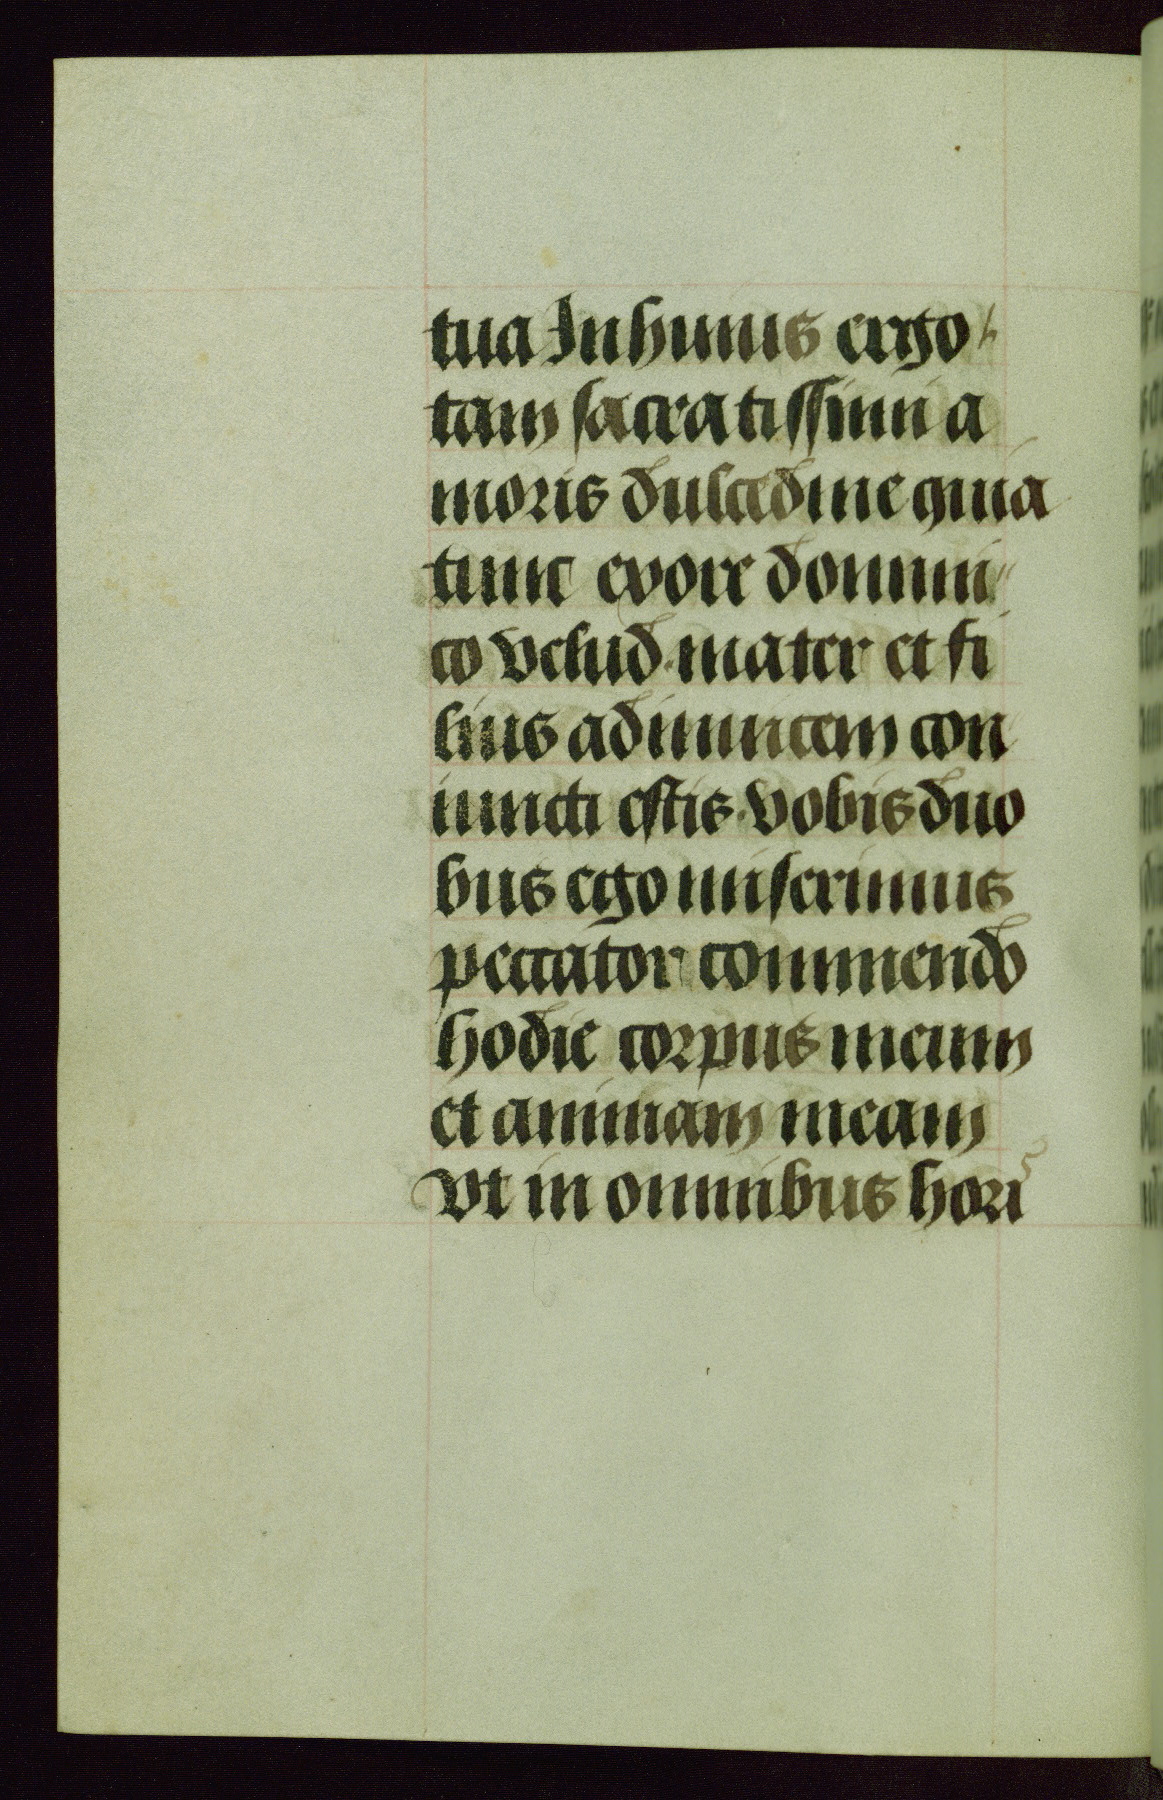 tua In huiuis ergo
tam sacratissimi a
moris dulcedine quia
tunc ex ore domini
co velud mater et fi
lius adinuicem con
iuncti estis. vobis duo
bus ego miserimus
peccator commendo
hodie corpus meum
et animam meam
vt in omnibus hori